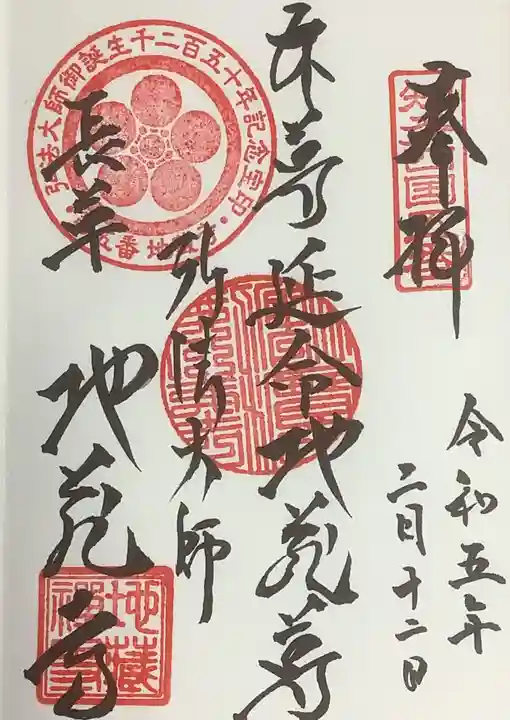 奉拝
令和五年
二月十二日
本尊延命地蔵尊
弘法大師
長羊
地蔵寺
弘法大師御誕生千二百五十年記念宝印
地蔵
禅寺